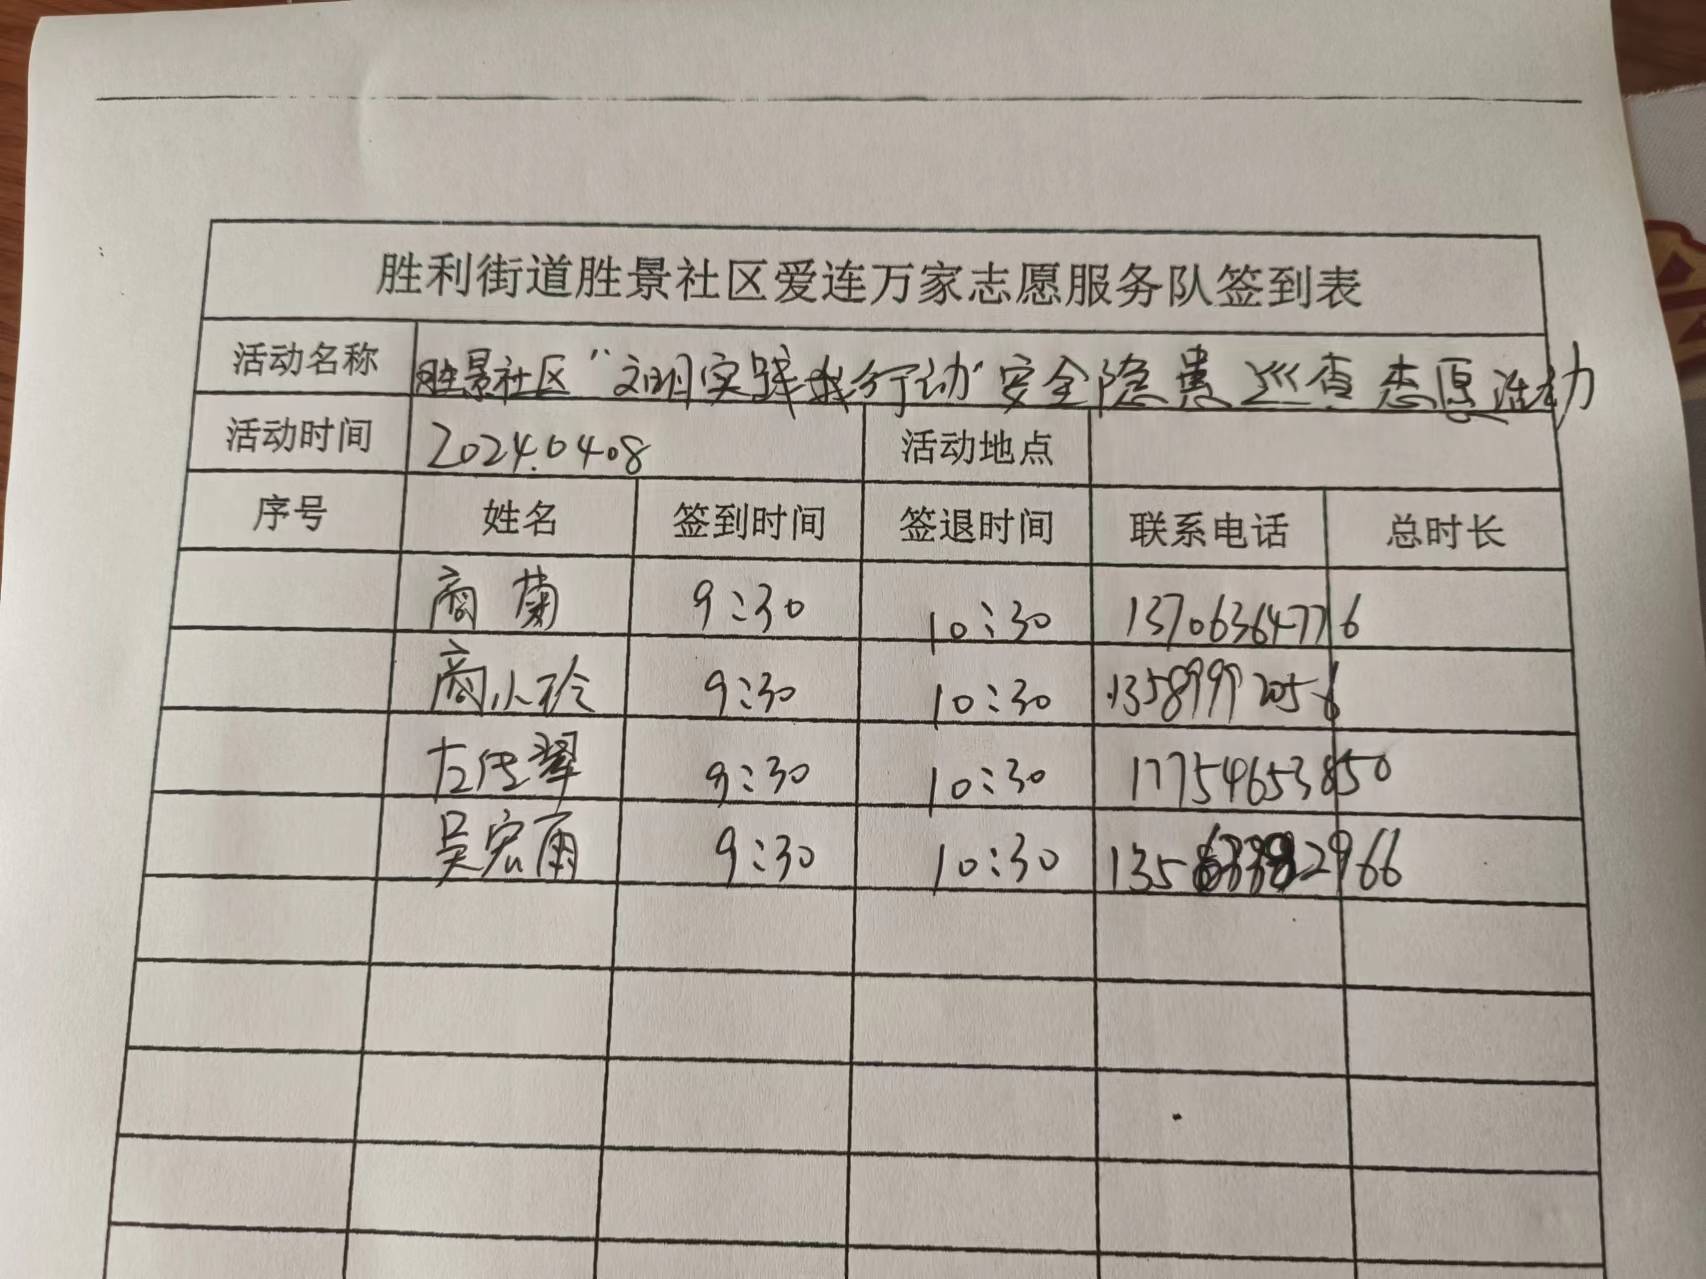 胜利街道胜景社区爱连万家志愿服务队签到表
活动名称 胜景社区"文明实践我行动"安全隐患巡查志愿活动
活动时间 2024.04.08 活动地点
序号 姓名 签到时间 签退时间 联系电话 总时长
商菊 9:30 10:30 13706364776
商小玲 9:30 10:30 13589997056
左传翠 9:30 10:30 17754653850
吴宏雨 9:30 10:30